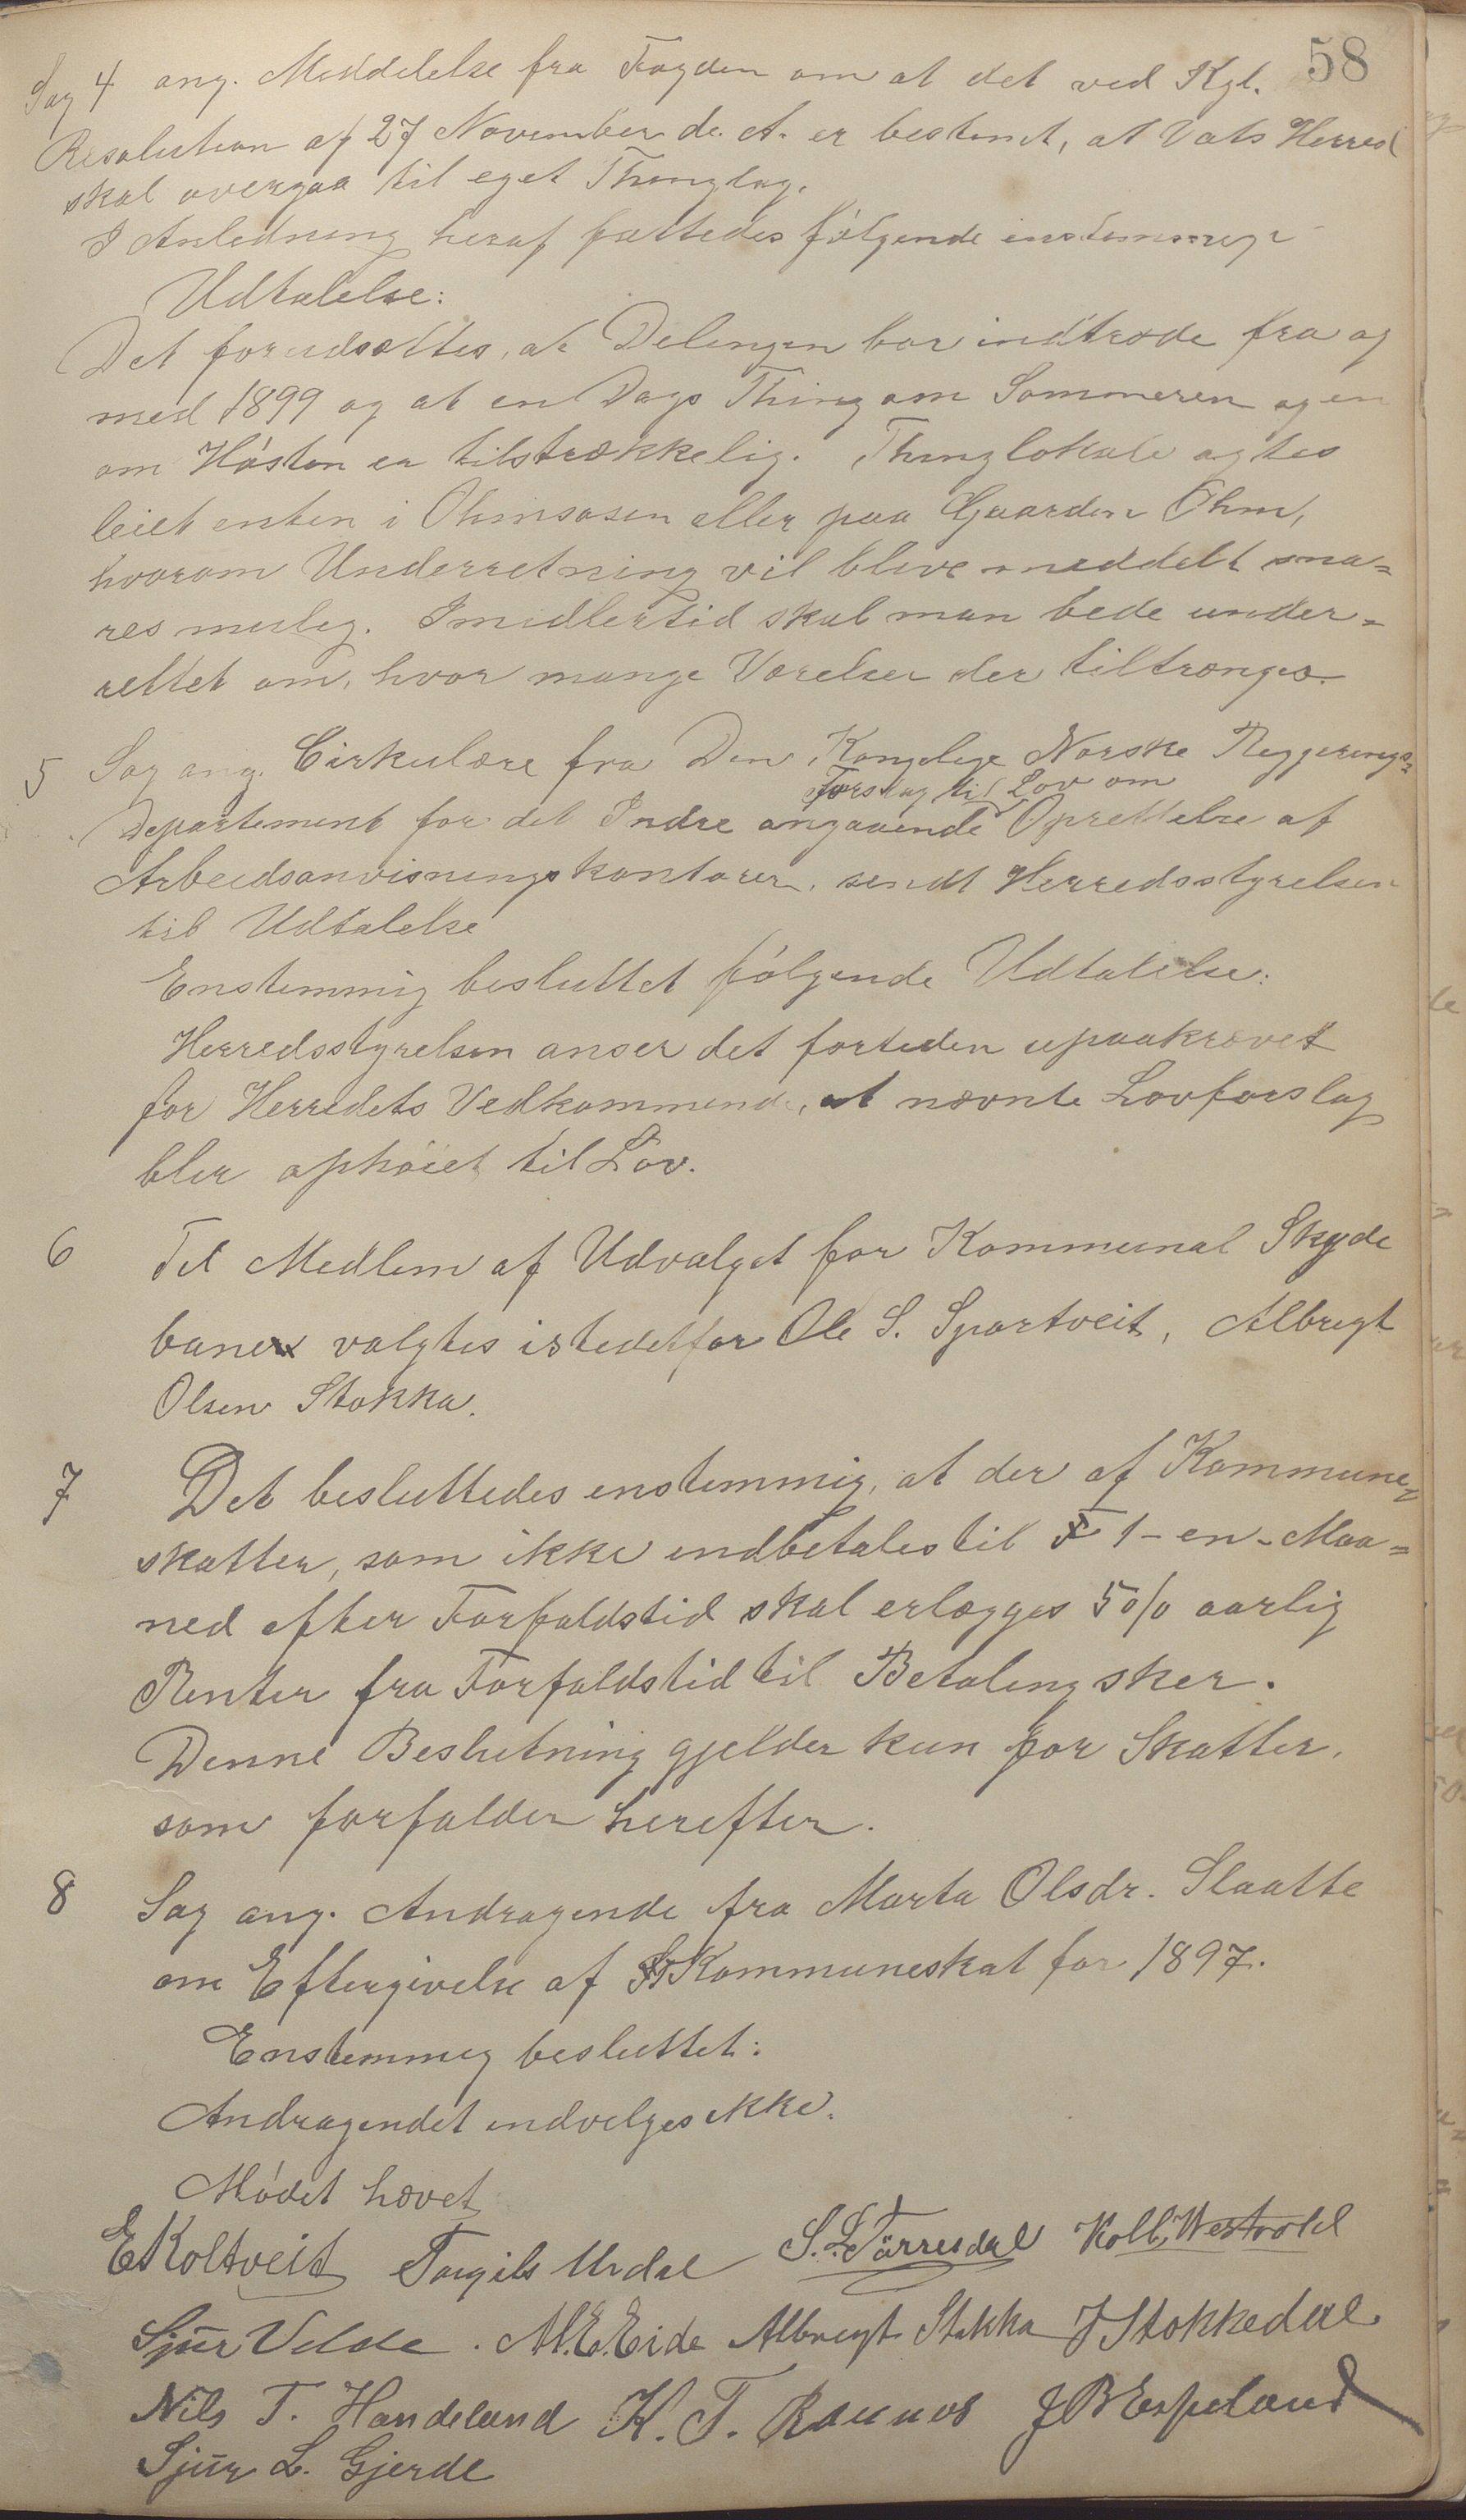 58
Sag 4 ang. Meddelelse fra Fogden om at det ved Kgl.
Resolution af 27 November d. A. er bestemt, at Vats Herred
skal overgaa til eget Thinglag.
I Anledning heraf fattedes følgende enstemmige
Udtalelse:
Det forudsættes, at Delingen bør indtræde fra og
med 1899 og at en Dags Thing om Sommeren og en
om Høsten er tilstrækkelig. Thinglokale agtes
leiet enten i Ølmsosen eller paa Gaarden Ølm,
hvorom Underretning vil blive meddelt sna=
res mulig. Imidlertid skal man bede under=
rettet om, hvor mange Værelser der tiltrænges.
5 Sag ang. Cirkulære fra Den Kongelige Norske Reggerings=
Forslag til Lov om
Departement for det Indre angaaende Oprettelse af
Arbeidsanvisningskontorer, sendt Herredsstyrelsen
til Udtalelse
Enstemmig besluttet følgende Udtalelse:
Herredsstyrelsen anser det fortiden upaakrævet
for Herredets Vedkommende, at nævnte Lovforslag
blir ophøiet til Lov.
6 Til Medlem af Udvalget for Kommunal Skyde
baner valgtes istedetfor Ole S. Spartveit, Albregt
Olsen Stokka.
7 Det besluttedes enstemmig, at der af Kommune=
skatter, som ikke indbetales til 1 - en - Maa=
ned efter Forfaldstid skal erlægges 5 o/o aarlig
Renter fra Forfaldstid til Betaling sker.
Denne Beslutning gjelder kun for Skatter,
som forfalder herefter.
8 Sag ang. Andragende fra Marta Olsdr. Slaatte
om Eftergivelse af Kommuneskat for 1897.
Enstemmig besluttet:
Andragendet indvelges ikke.
Mødet hævet
E Koltveit Torgils Urdal S. L. Tørresdal Kolb. Westvold
Sjur Velde. M. E. Eide Albregt Stokka J Stokkedal
Nils T. Handeland K. T. Raunos J B Espeland
Sjur L. Gjerde